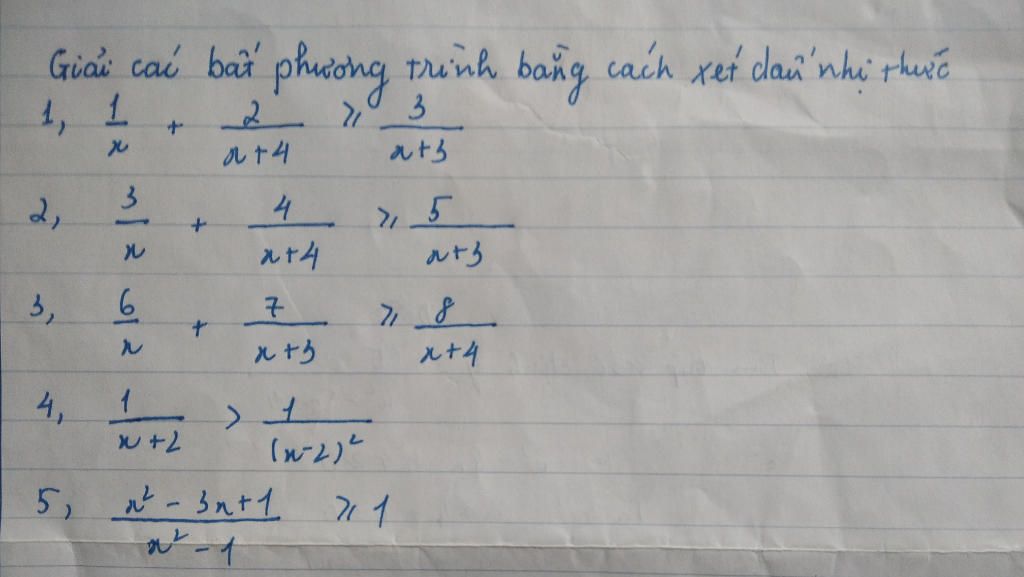 Giải các bất phương trình bằng cách xét dấu nhị thức
1, 1/x + 2/(x+4) ⩾ 3/(x+3)
2, 3/x + 4/(x+4) ⩾ 5/(x+3)
3, 6/x + 7/(x+3) ⩾ 8/(x+4)
4, 1/(x+2) > 1/(x-2)²
5, (x² - 3x+1)/(x² - 1) ⩾ 1